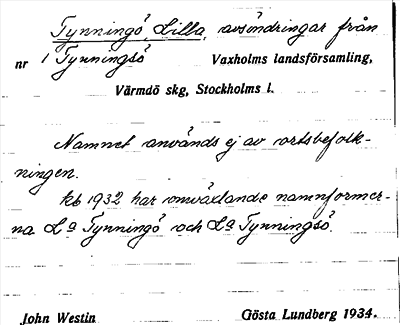 Tynningö, Lilla, avsöndringar från
nr 1 Tynningsö Vaxholms landsförsamling,
Värmdö skg, Stockholms l.
Namnet används ej av ortsbefolk-
ningen.
kb 1932 har omväxlande namnformer-
na La Tynningö och La Tynningsö.
John Westin Gösta Lundberg 1934.